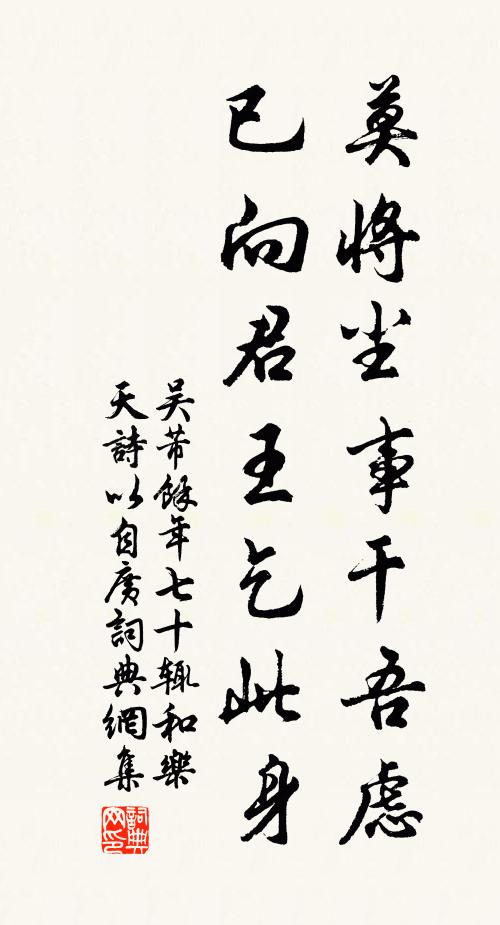 莫將尘事干吾慮
已向君王乞此身
吴芾餘年七十辄和樂
天詩以自廣詞典網集
詞典网印